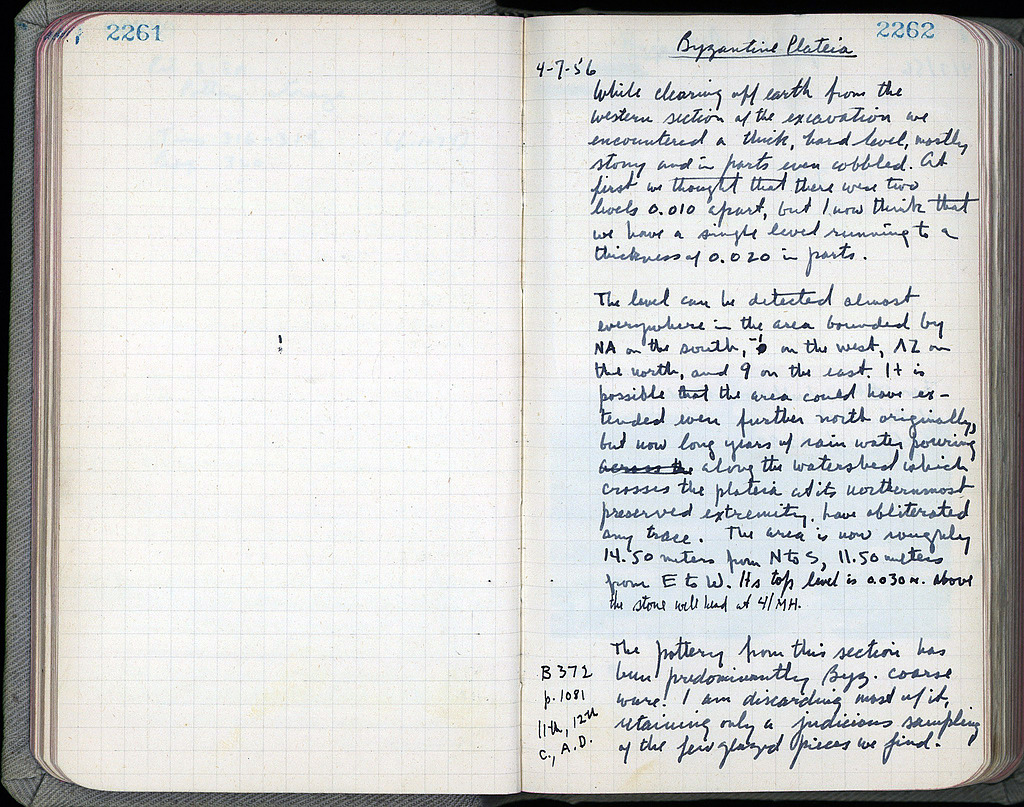 2261
2262
Byzantine Plateia
4-7-56
While clearing off earth from the
western section of the excavation we
encountered a thick, hard level, mostly
stony and in parts even cobbled. At
first we thought that there were two
levels 0.010 apart, but I now think that
we have a single level running to a
thickness of 0.020 in parts.
The level can be detected almost
everywhere in the area bounded by
NA on the south, on the west, ΛZ on
the north, and 9 on the east. It is
possible that the area could have ex-
tended even further north originally,
but now long years of rain water pouring
across the along the watershed which
crosses the plateia at its northernmost
preserved extremity, have obliterated
any trace. The area is now roughly
14.50 meters from N to S, 11.50 meters
from E to W. Its top level is 0.030 m. above
the stone well head at 41/MH.
The pottery from this section has
been predominantly Byz. coarse
ware. I am discarding most of it,
retaining only a judicious sampling
of the few glazed pieces we find.
B 372
p. 1081
11th, 12th
c., A.D.